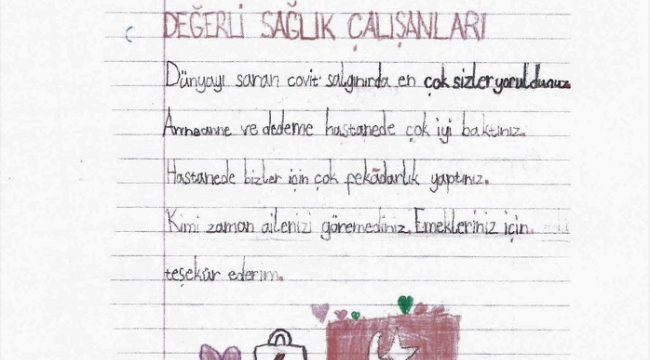 DEĞERLİ SAĞLIK ÇALIŞANLARI
Dünyayı saran covit salgınında en çok sizler yoruldunuz.
Anneanne ve dedeme hastanede çok iyi baktınız.
Hastanede bizler için çok fekâdarlık yaptınız.
Kimi zaman ailenizi göremediniz. Emekleriniz için
teşekür ederim.